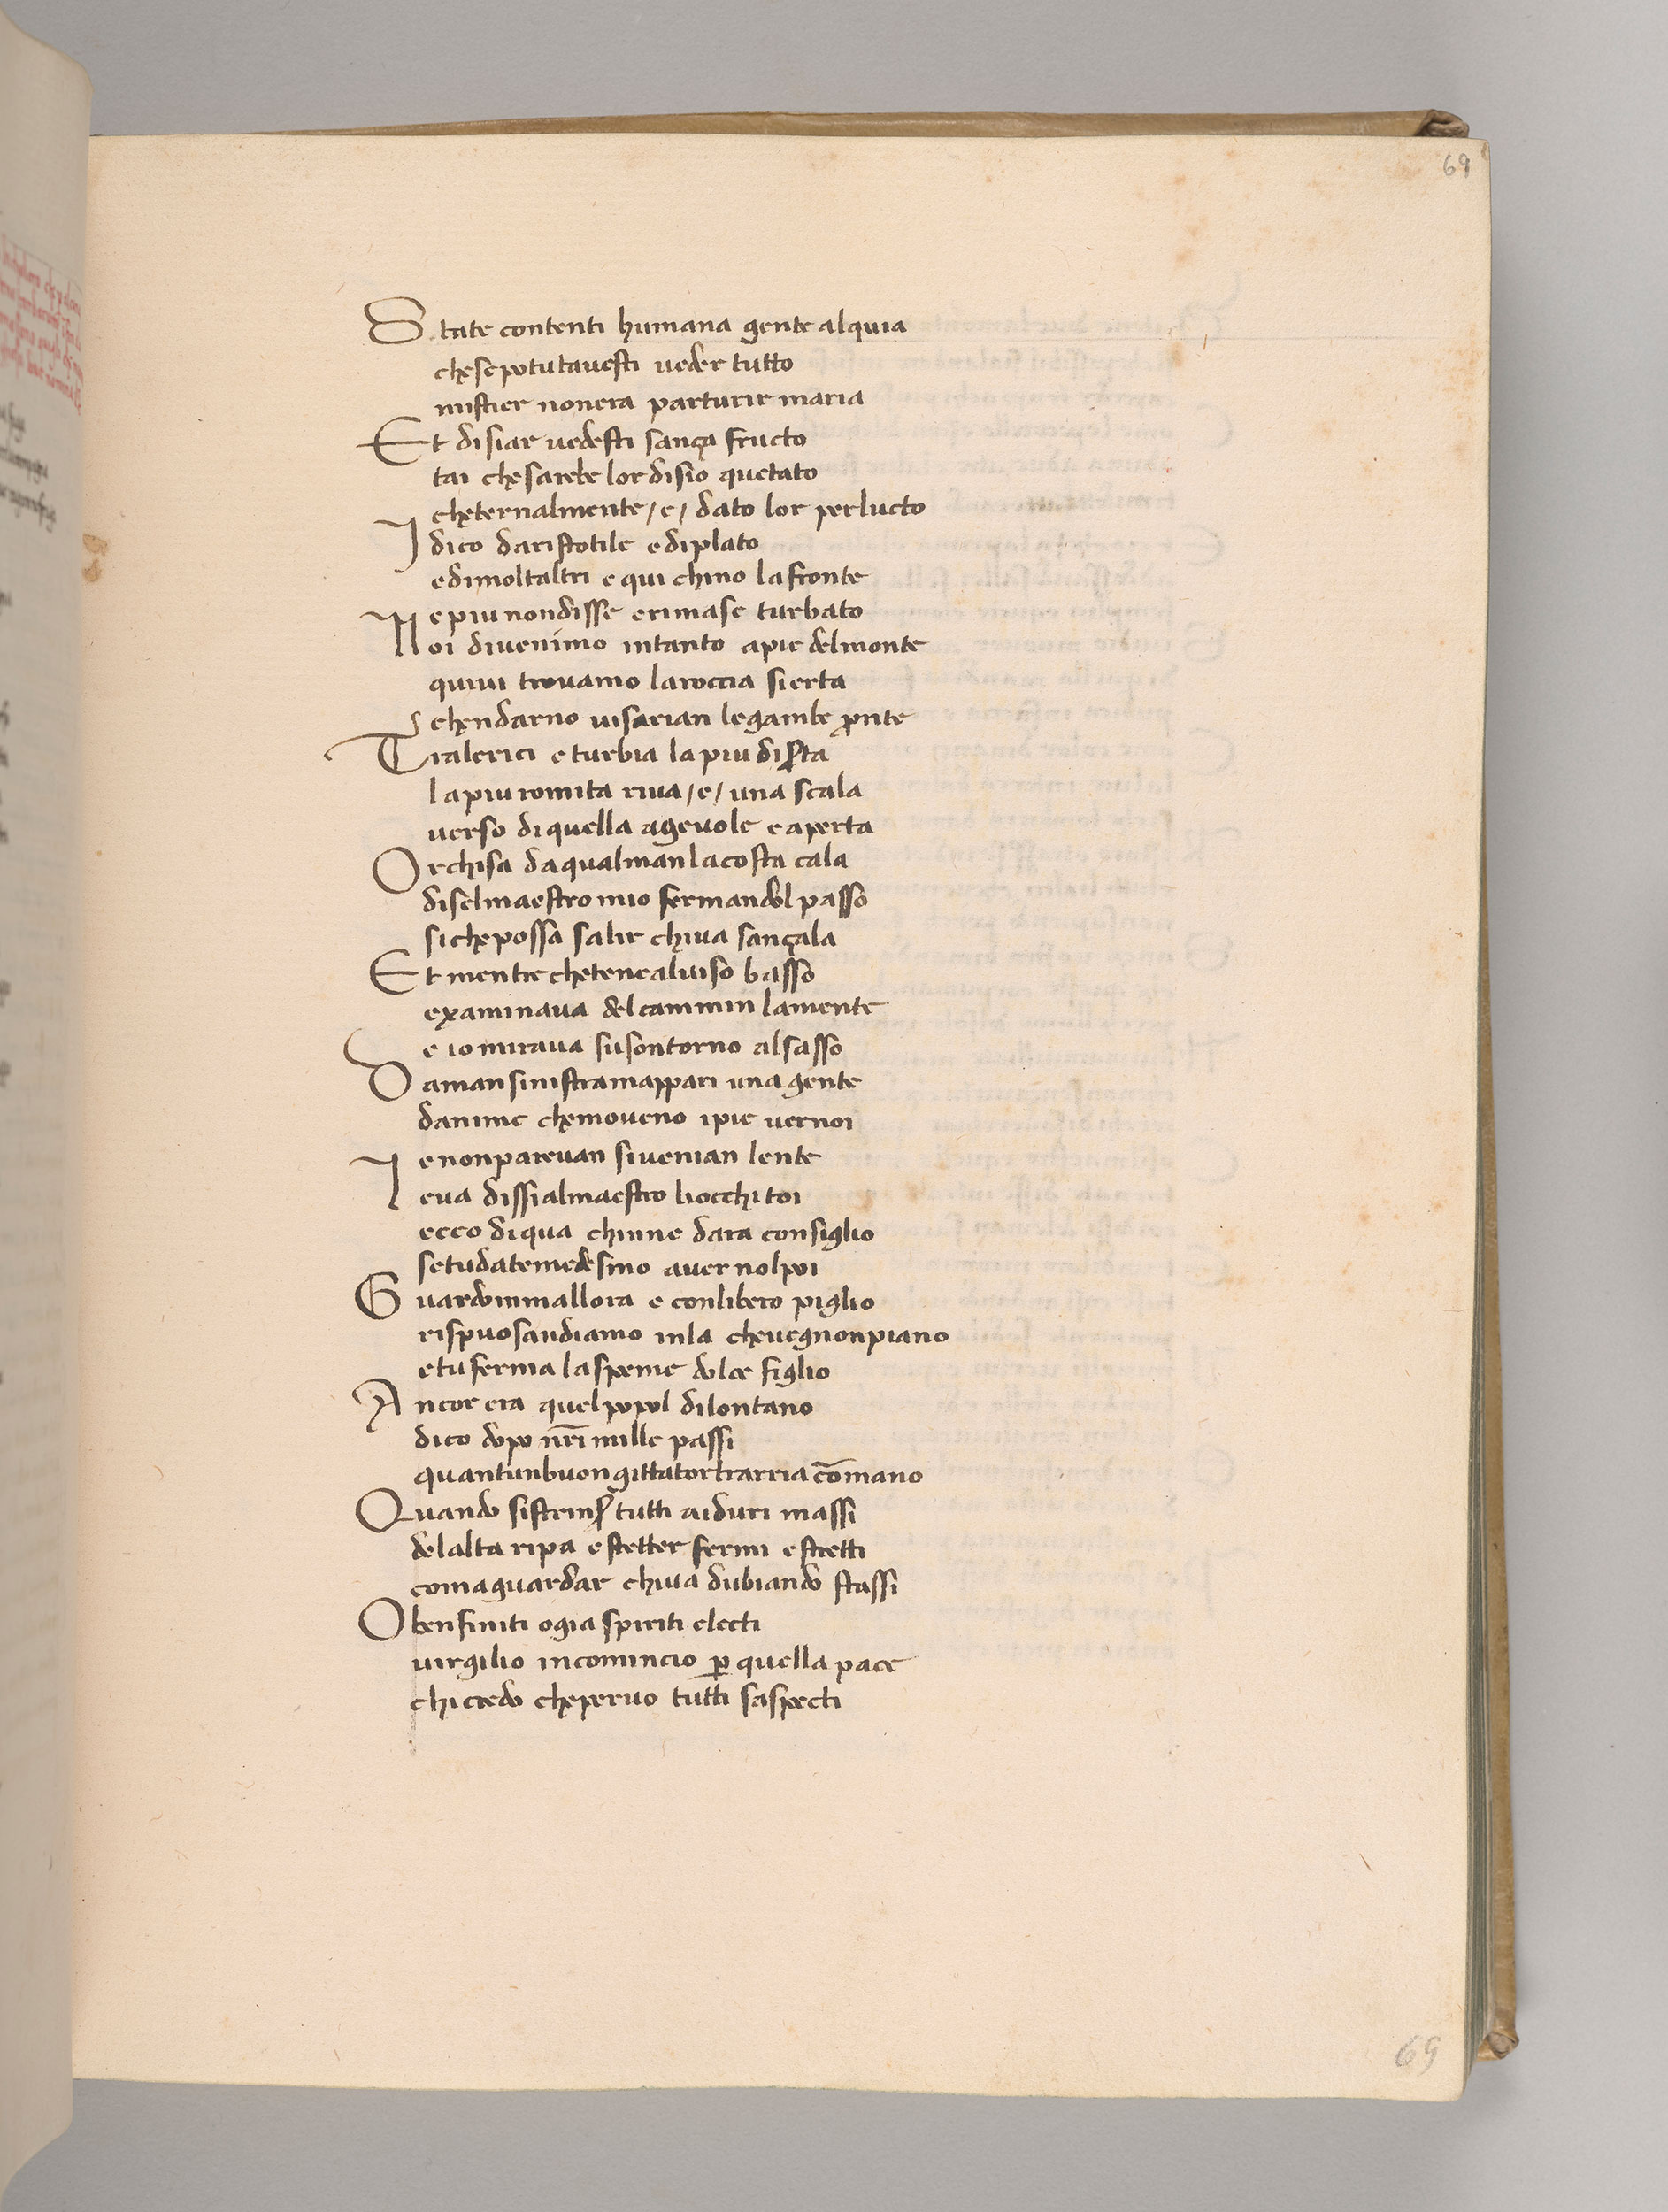 69
State contenti humana gente alquia
che se potutavesti veder tutto
mistier nonera parturir maria
Et disiar vedesti sança fructo
tai che sarebe lor disio quetato
cheternalmente / e / dato lor perlucto
I dico daristotile ediplato
edimoltaltri e qui chino lafronte
e piu nondisse erimase turbato
Noi divenimo intanto apie delmonte
quivi trovamo laroccia sierta
chendarno visarian legambe ꝓnte
Tralerici eturbia lapiu diserta
lapiu romita riva / e / una scala
verso diquella agevole eaperta
Orchisa daqualman lacosta cala
diselmaestro mio fermandol passo
siche possa salir chiva sançala
Et mentre chetenealviso basso
examinava delcammin lamente
e io mirava susontorno alsasso
Daman sinistramappari una gente
danime chemoveno ipie vernoi
enonparevan sivenian lente
Leva dissialmaestro liocchi toi
ecco diqua chinne dara consiglio
setudatemedesmo aver nolpoi
Guardommallora e conlibero piglio
rispuosandiamo inla chevegnonpiano
etuferma laspeme dolce figlio
Ancor era quelpopol dilontano
dico dopo nr̃i mille passi
quantunbuon gittatortrarria cõmano
Quando sistrinser tutti aiduri massi
delalta ripa estetter fermi estretti
comaguardar chiva dubiando stassi
Obenfiniti ogia spiriti electi
virgilio incomincio ꝑ quella pace
chicredo chepervo tutti saspecti
69